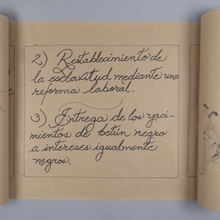 2) Restablecimiento de
la esclavitud mediante una
reforma laboral.
3) Entrega de los yaci-
mientos de betún negro
a intereses igualmente
negros.